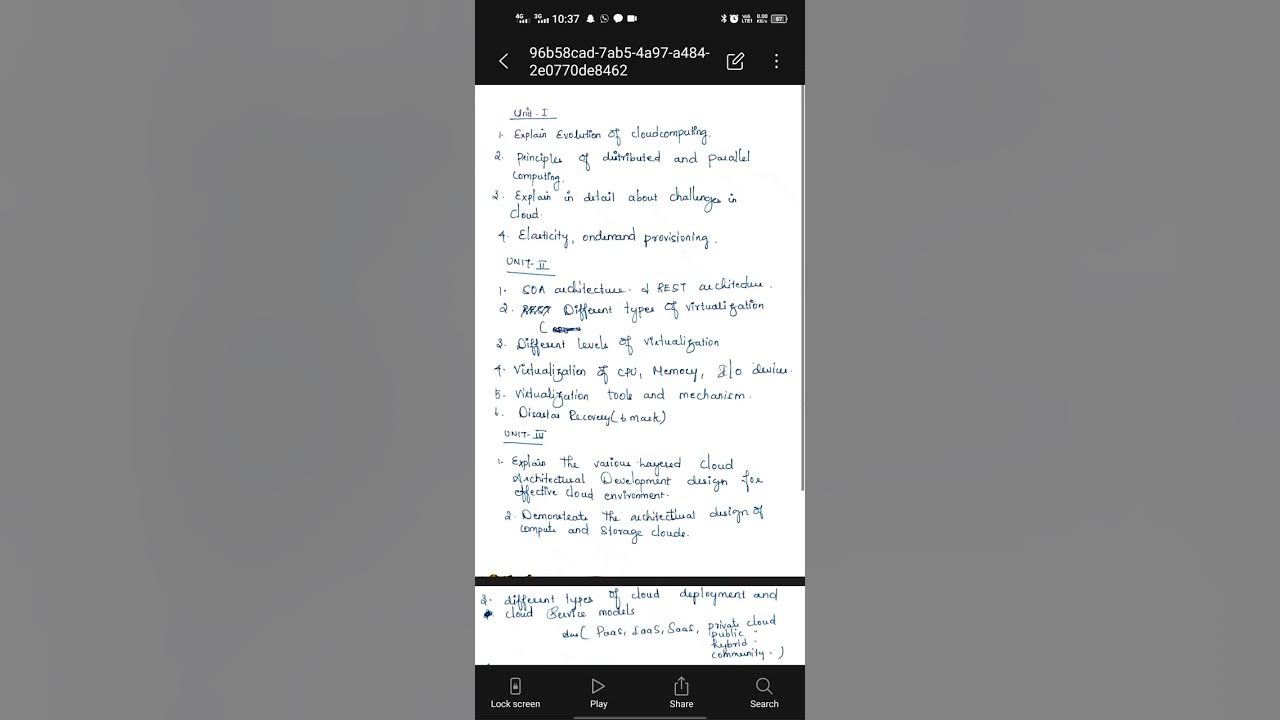 4G 3G 10:37 Vo5 LTE1 0.00 KB/s 87
96b58cad-7ab5-4a97-a484-
2e0770de8462
Unit - I
1. Explain Evolution of cloudcomputing.
2. Principles of distributed and parallel
computing.
3. Explain in detail about challenges in
cloud.
4. Elasticity, ondemand provisioning.
UNIT-II
1. SOA architecture. & REST architecture.
2. Different types of virtualization
(
3. Different levels of virtualization
4. Virtualization of CPU, Memory, I/O device.
5. Virtualization tools and mechanism.
6. Disaster Recovery (6 mark)
UNIT-III
1. Explain the various layered cloud
Architectural Development design for
effective cloud environment.
2. Demonstrate the architectural design of
compute and storage clouds.
3. different types of cloud deployment and
cloud service models
(PaaS, IaaS, SaaS, private cloud
public "
hybrid -
community - )
Lock screen Play Share Search